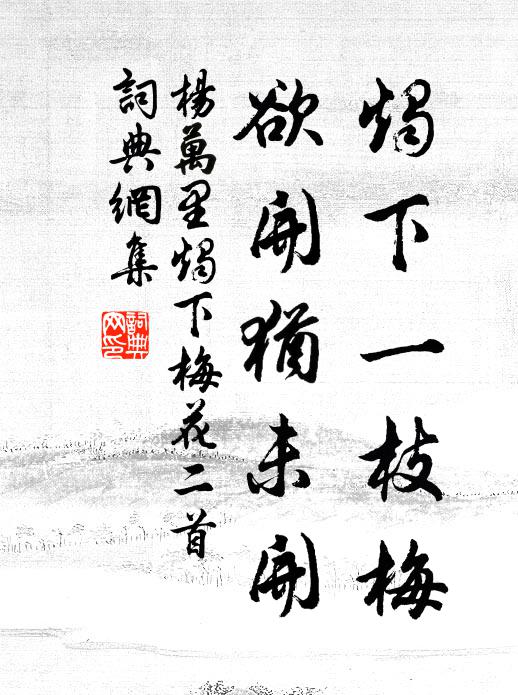 燭下一枝梅
欲開猶未開
楊萬里燭下梅花二首
詞典網集
詞典網印